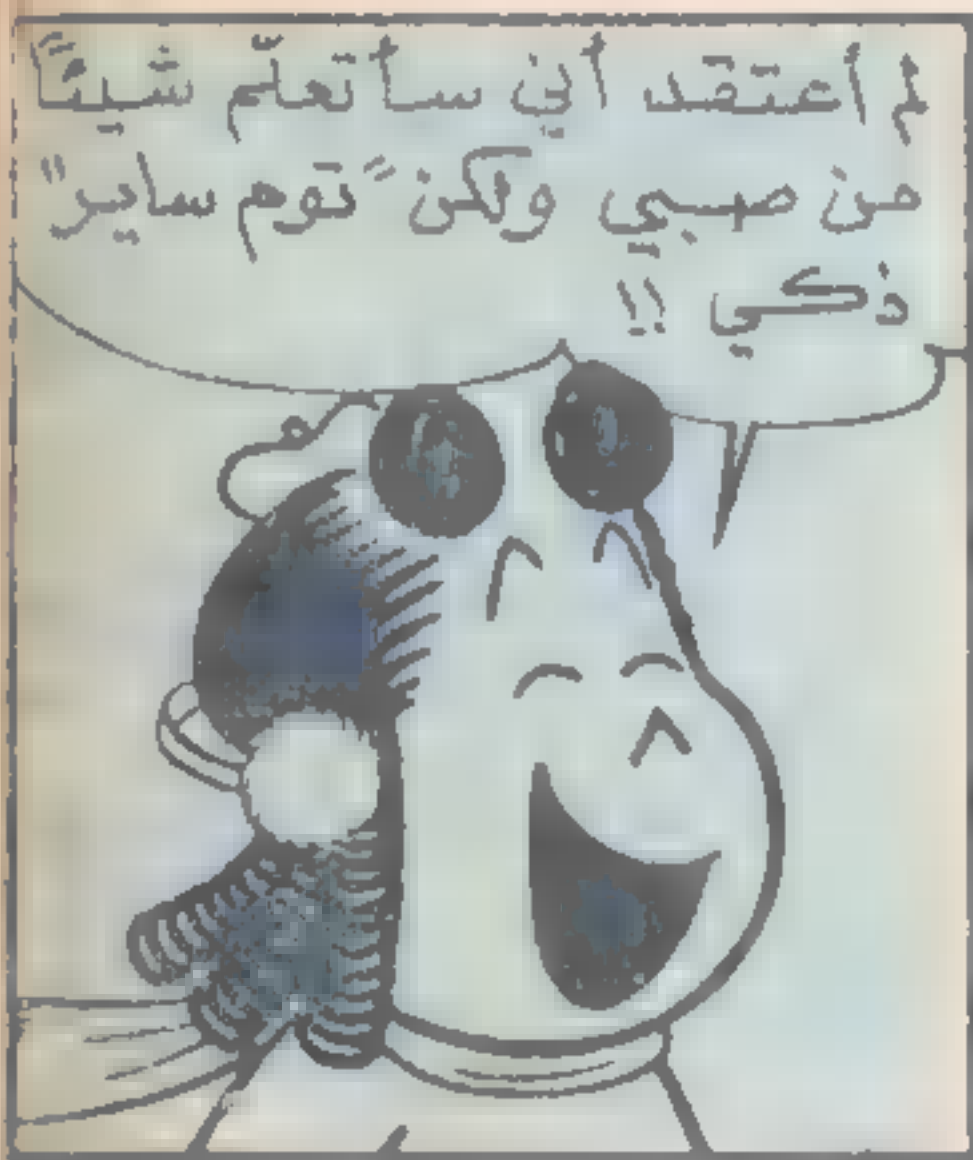 لم أعتقد أني سأتعلّم شيئاً
من صبي ولكن "توم ساير"
ذكي !!